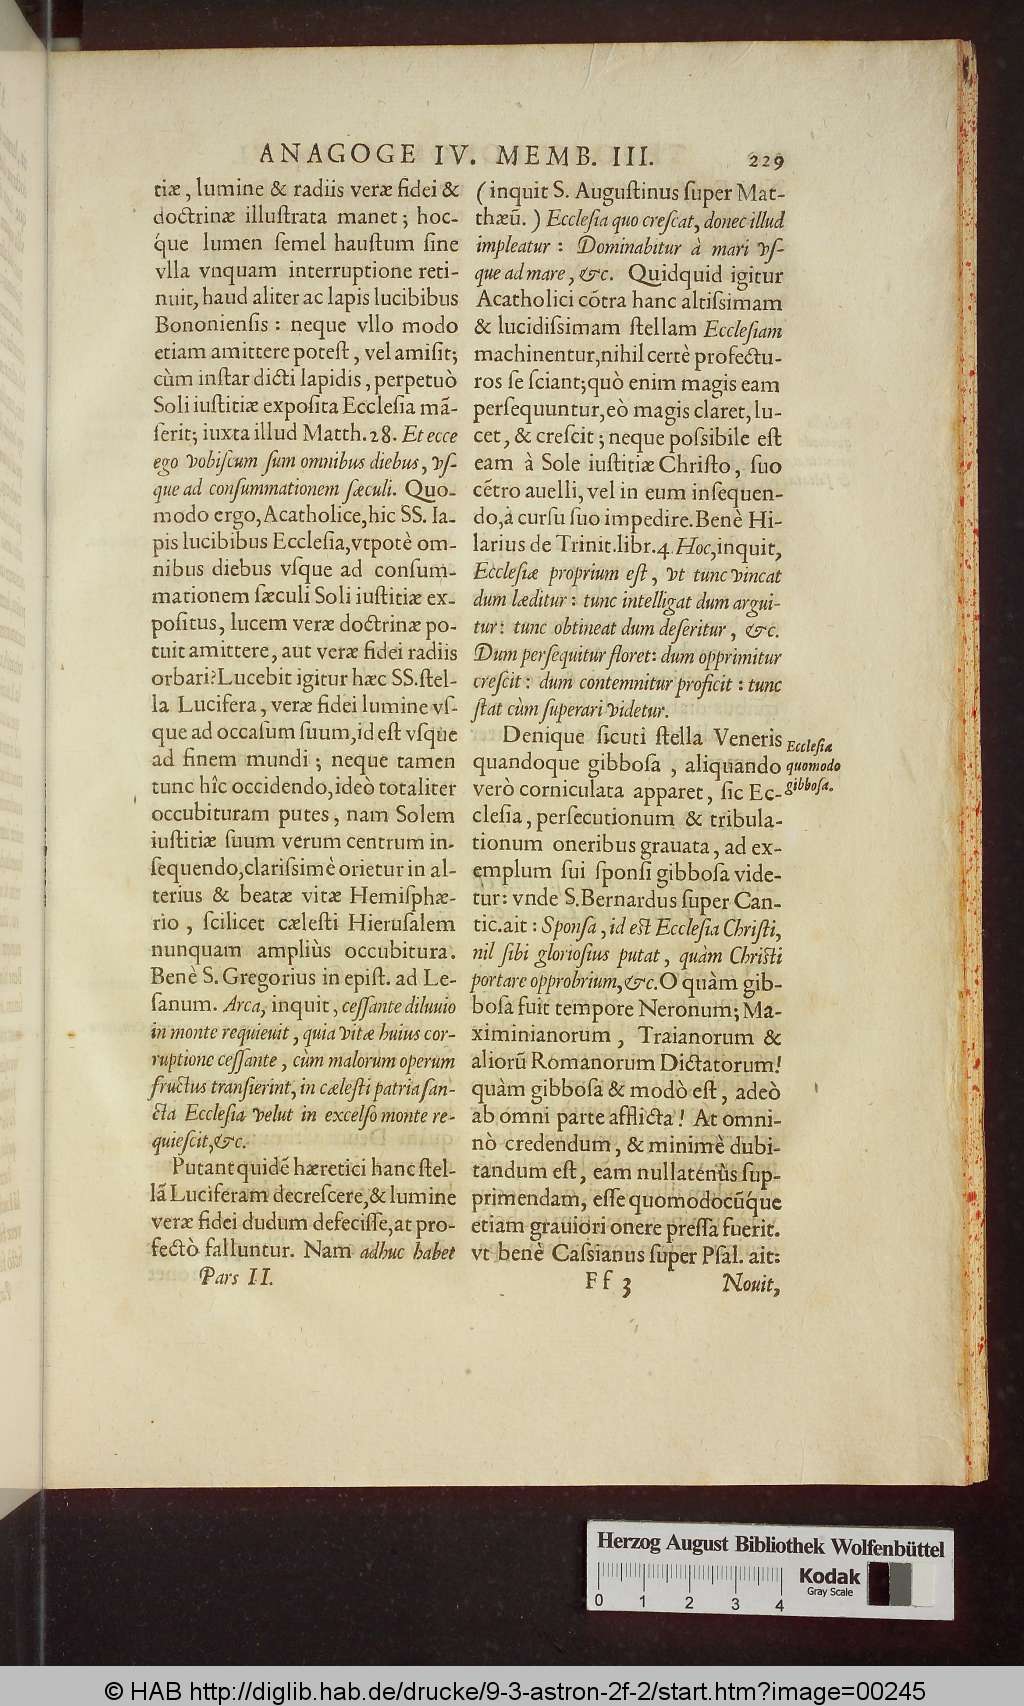 ANAGOGE IV. MEMB. III. 229
tiæ, lumine & radiis veræ fidei &
doctrinæ illuſtrata manet; hoc-
q́ue lumen ſemel hauſtum ſine
vlla vnquam interruptione reti-
nuit, haud aliter ac lapis lucibibus
Bononienſis: neque vllo modo
etiam amittere poteſt, vel amiſit;
cùm inſtar dicti lapidis, perpetuò
Soli iuſtitiæ expoſita Eccleſia mã-
ſerit; iuxta illud Matth. 28. Et ecce
ego vobiſcum ſum omnibus diebus, vſ-
que ad conſummationem ſæculi. Quo-
modo ergo, Acatholice, hic SS. la-
pis lucibibus Eccleſia, vtpotè om-
nibus diebus vſque ad conſum-
mationem ſæculi Soli iuſtitiæ ex-
poſitus, lucem veræ doctrinæ po-
tuit amittere, aut veræ fidei radiis
orbari? Lucebit igitur hæc SS. ſtel-
la Lucifera, veræ fidei lumine vſ-
que ad occaſum ſuum, id eſt vſque
ad finem mundi; neque tamen
tunc hîc occidendo, ideò totaliter
occubituram putes, nam Solem
iuſtitiæ ſuum verum centrum in-
ſequendo, clariſsimè orietur in al-
terius & beatæ vitæ Hemiſphæ-
rio, ſcilicet cæleſti Hieruſalem
nunquam ampliùs occubitura.
Benè S. Gregorius in epiſt. ad Le-
ſanum. Arca, inquit, ceſſante diluuio
in monte requieuit, quia vitæ huius cor-
ruptione ceſſante, cùm malorum operum
fructus tranſierint, in cæleſti patria ſan-
cta Eccleſia velut in excelſo monte re-
quieſcit, &c.
Putant quidẽ hæretici hanc ſtel-
lã Luciferam decreſcere, & lumine
veræ fidei dudum defeciſſe, at pro-
fectò falluntur. Nam adhuc habet
Pars II.
(inquit S. Auguſtinus ſuper Mat-
thæũ.) Eccleſia quo creſcat, donec illud
impleatur: Dominabitur à mari vſ-
que ad mare, &c. Quidquid igitur
Acatholici cõtra hanc altiſsimam
& lucidiſsimam ſtellam Eccleſiam
machinentur, nihil certè profectu-
ros ſe ſciant; quò enim magis eam
perſequuntur, eò magis claret, lu-
cet, & creſcit; neque poſsibile eſt
eam à Sole iuſtitiæ Chriſto, ſuo
cẽtro auelli, vel in eum inſequen-
do, à curſu ſuo impedire. Benè Hi-
larius de Trinit. libr. 4. Hoc, inquit,
Eccleſiæ proprium eſt, vt tunc vincat
dum læditur: tunc intelligat dum argui-
tur: tunc obtineat dum deſeritur, &c.
Dum perſequitur floret: dum opprimitur
creſcit: dum contemnitur proficit: tunc
ſtat cùm ſuperari videtur.
Denique ſicuti ſtella Veneris
quandoque gibboſa, aliquando
verò corniculata apparet, ſic Ec-
cleſia, perſecutionum & tribula-
tionum oneribus grauata, ad ex-
emplum ſui ſponſi gibboſa vide-
tur: vnde S. Bernardus ſuper Can-
tic. ait: Sponſa, id eſt Eccleſia Chriſti,
nil ſibi glorioſius putat, quàm Chriſti
portare opprobrium, &c. O quàm gib-
boſa fuit tempore Neronum; Ma-
ximinianorum, Traianorum &
aliorũ Romanorum Dictatorum!
quàm gibboſa & modò eſt, adeò
ab omni parte afflicta! At omni-
nò credendum, & minimè dubi-
tandum eſt, eam nullatenùs ſup-
primendam, eſſe quomodocũq́ue
etiam grauiori onere preſſa fuerit.
vt benè Caſsianus ſuper Pſal. ait:
Ff 3 Nouit,
Eccleſia
quomodo
gibboſa.
Herzog August Bibliothek Wolfenbüttel
Kodak
Gray Scale
0 1 2 3 4
© HAB http://diglib.hab.de/drucke/9-3-astron-2f-2/start.htm?image=00245